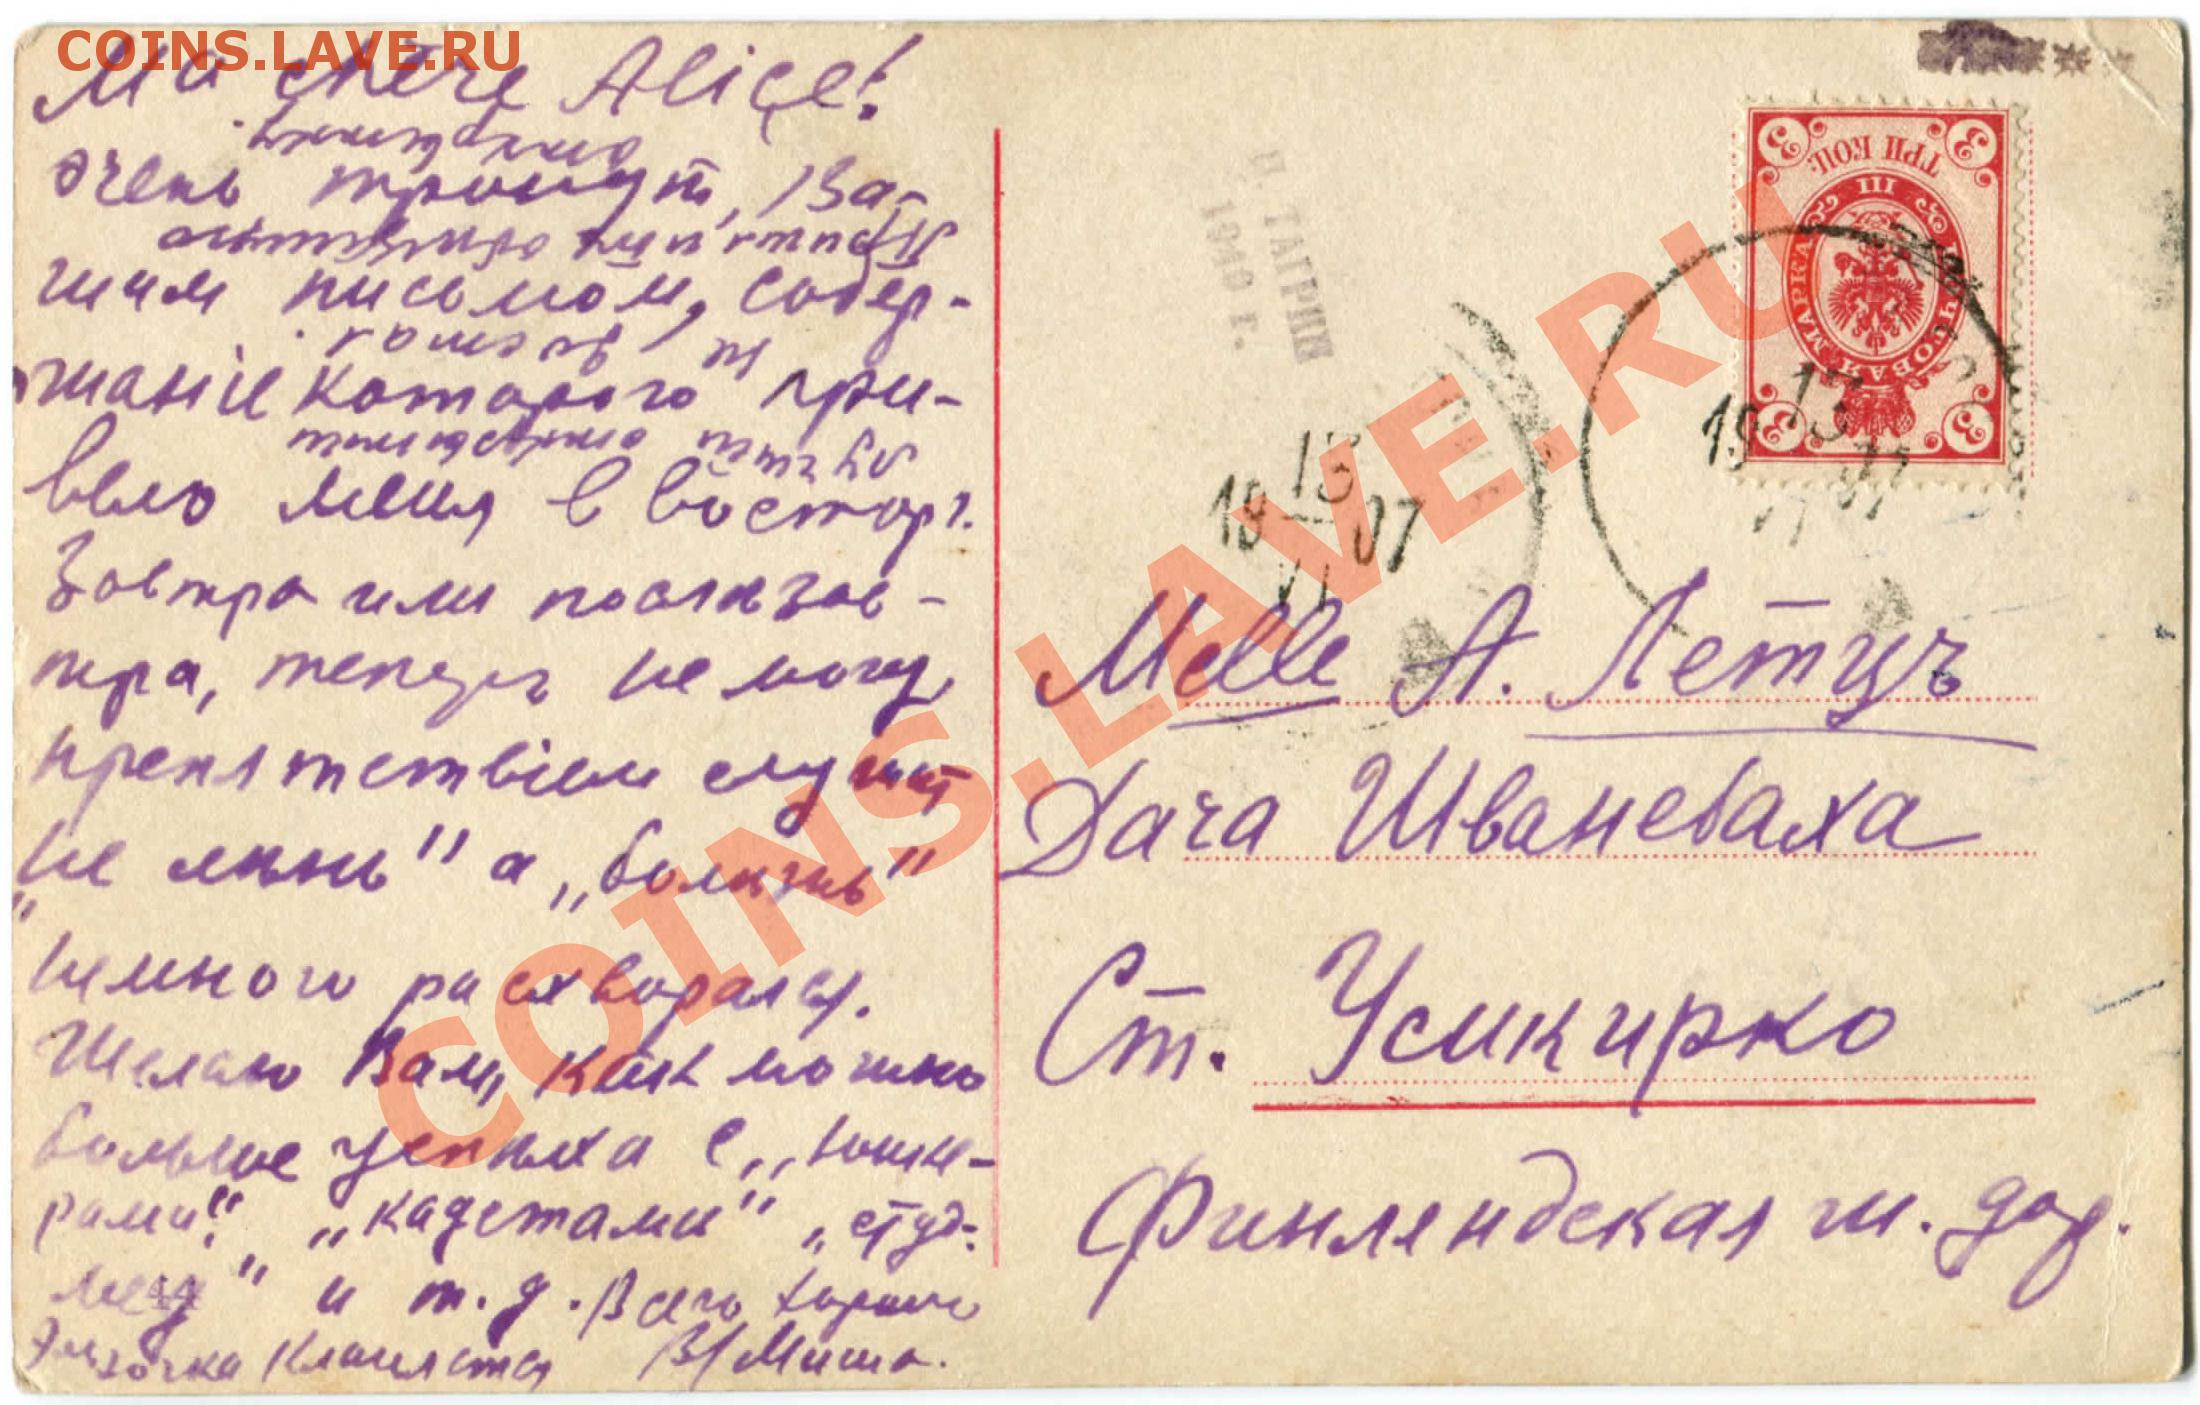 COINS.LAVE.RU
Ma chère Alice!
очень тронут, Ва-
шим письмом, содер-
жаніе которого при-
вело меня в восторг.
Завтра или послѣзав-
тра, теперь не могу,
препятствіем служит
"не лѣнь" а „болѣзнь"
немного расхворался.
Желаю Вам, как можно
больше успѣха с „юнке-
рами", „кадетами" „студ-
" и т. д. Всего хорошего
кланяется В/Миша.
ТРИ КОП.
III
ПОЧТОВАЯ МАРКА
3
3
3
3
П. ТАГРИН
1940 г.
13
19 07
VI
13
19 07
VI
Melle А. Летцъ
Дача Шванебаха
Ст. Усикирко
Финляндская ж. дор.
COINS.LAVE.RU